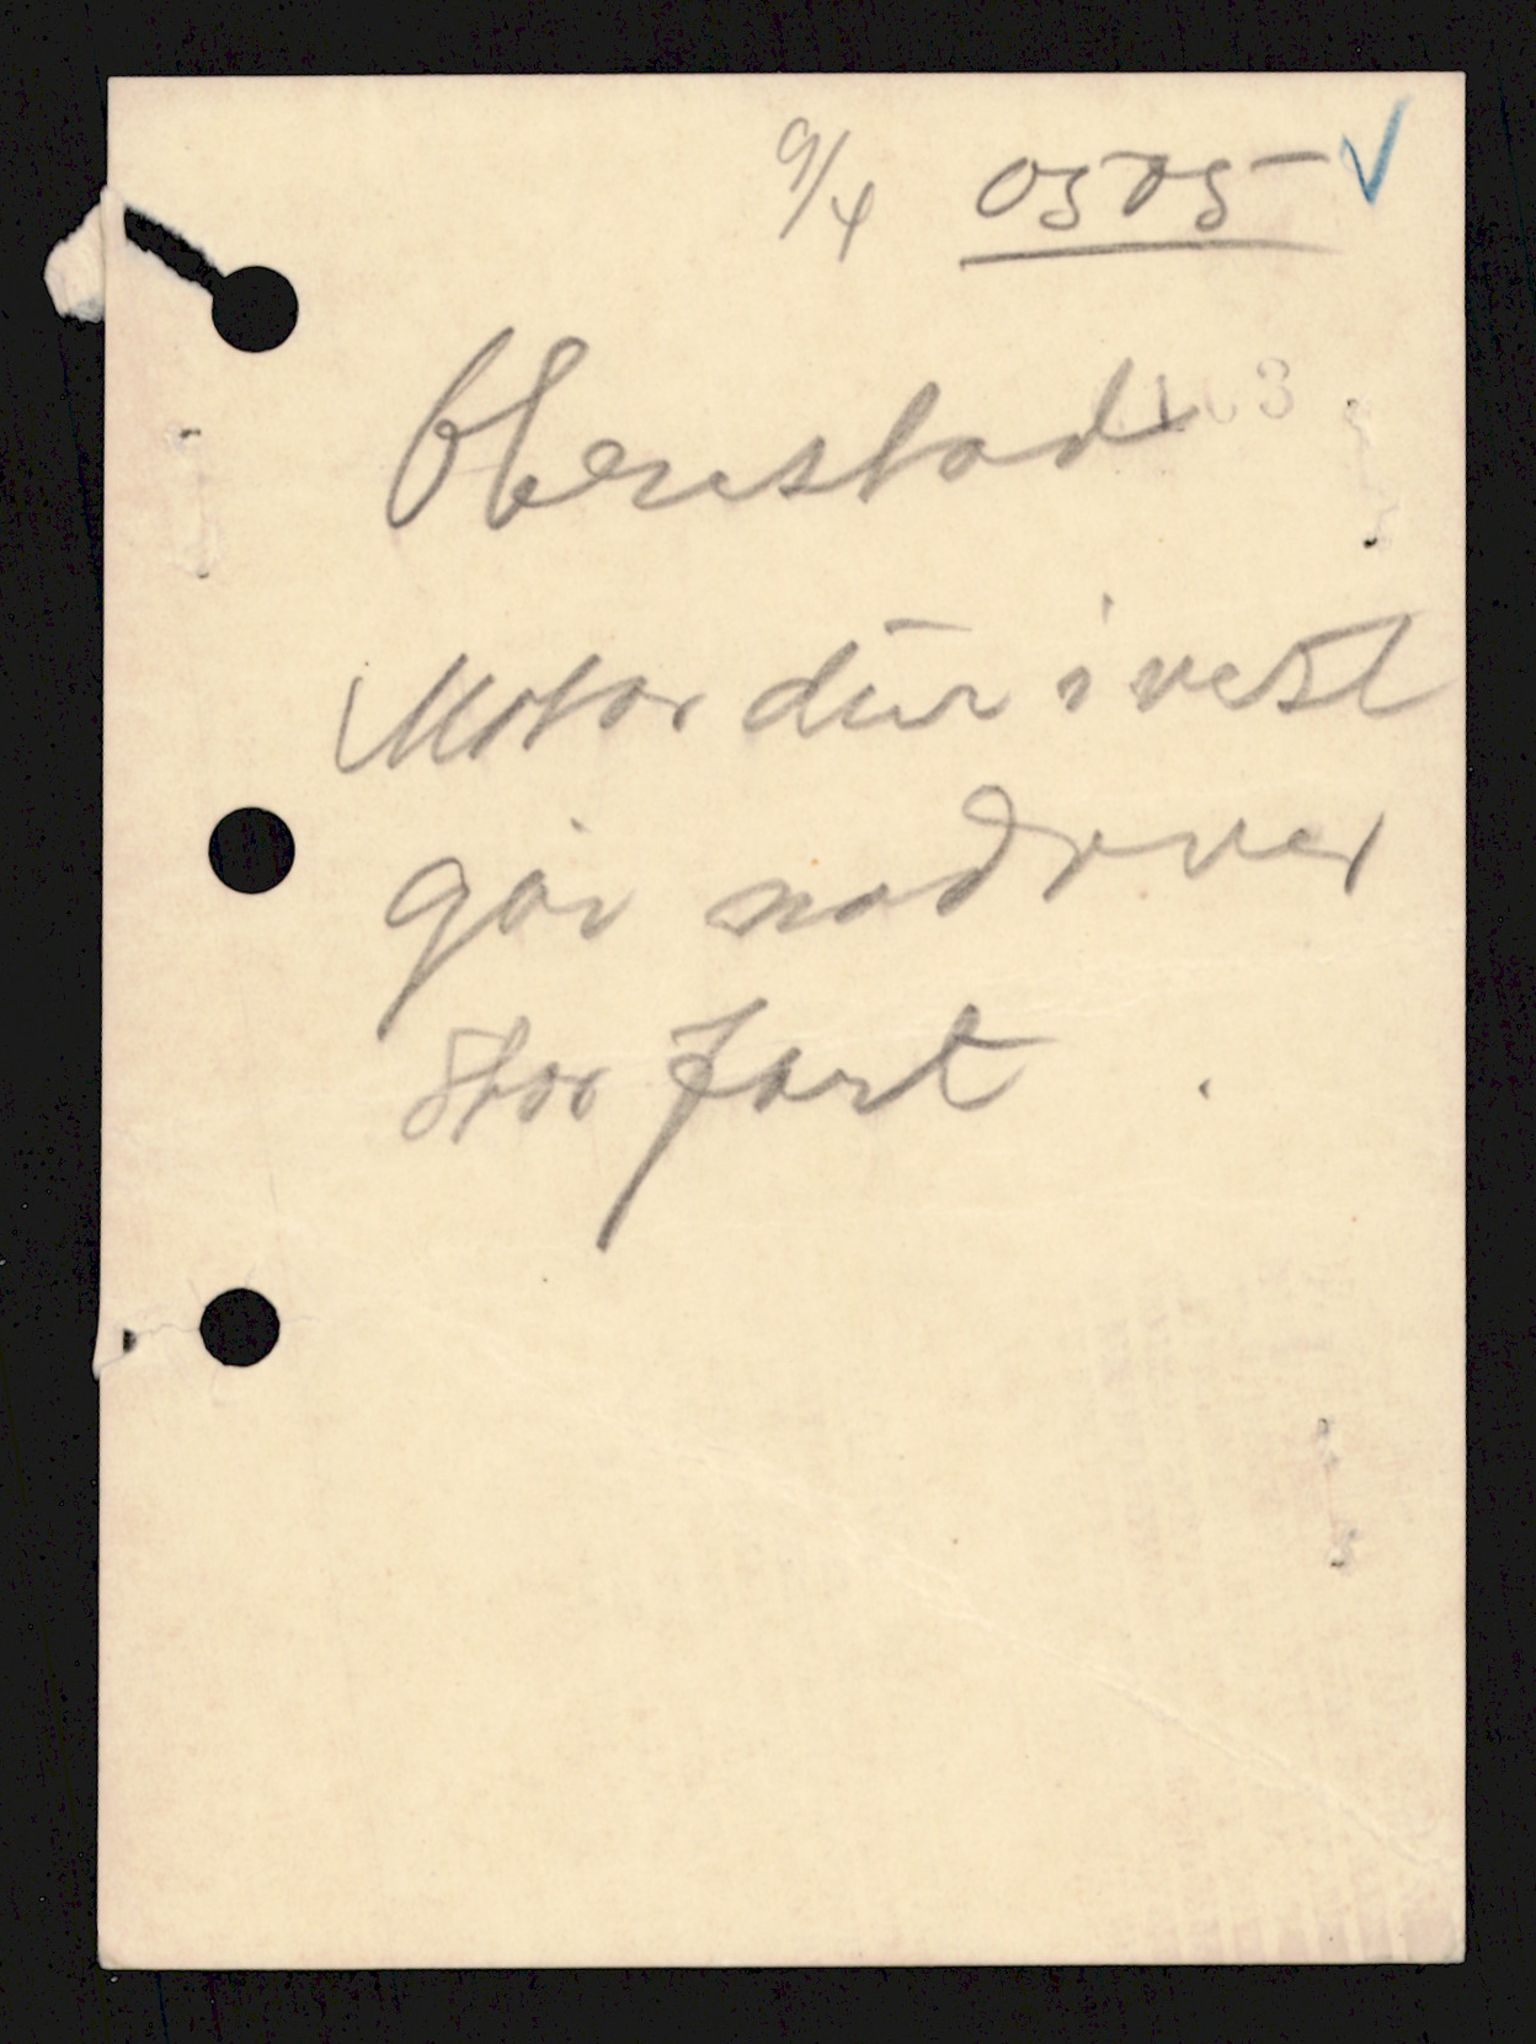 9/4 0505 ✓
Obrestad
Motordur i vest
går nordover
stor fart.